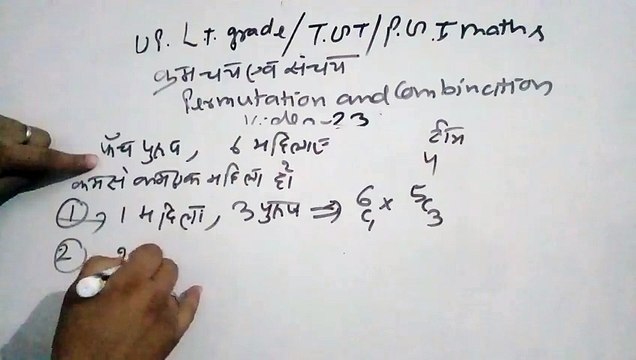 UP. LT. grade/T.G.T/P.G.T maths
क्रमचय एवं संचय
Permutation and Combination
Video-23
पाँच पुरुष, 6 महिलाएं टीम
4
कमसे कम एक महिला हो
① → 1 महिला, 3 पुरुष ⇒ 6c₁ × 5c₃
②